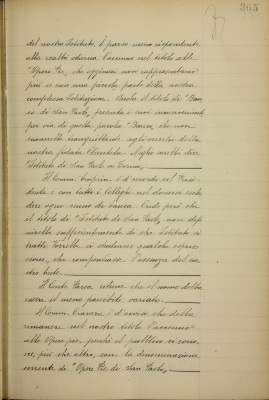 365
del nostro Istituto. È parso meno rispondente
alla realtà odierna l'accenno nel titolo alle
"Opere Pie, che oggimai non rappresentano
più se non una piccola parte della nostra
complessa Istituzione. Anche il titolo di "Ban
co di San Paolo, presenta i suoi inconvenienti
per via di quella parola "Banco, che non
suonerebbe tranquillante agli orecchi della
nostra fidata Clientela. Meglio sarebbe dire
"Istituto di San Paolo in Torino,
Il Comm. è d'accordo col Presi
dente e con tutti i Colleghi nel doversi esclu
dere ogni cenno di banca. Crede però che
il titolo di "Istituto di San Paolo, non defi
nirebbe sufficientemente di che Istituto si
tratti. Vorrebbe si studiasse qualche espres
sione, che compendiasse l'essenza del no
stro Ente.
Il Conte ritiene che il nome debba
essere il meno possibile variato.
Il Comm. Cravero è d'avviso che debba
rimanere nel nostro titolo l'accenno
alle Opere pie, perchè il pubblico ci cono
sce, più che altro, con la denominazione
corrente di "Opere Pie di San Paolo,